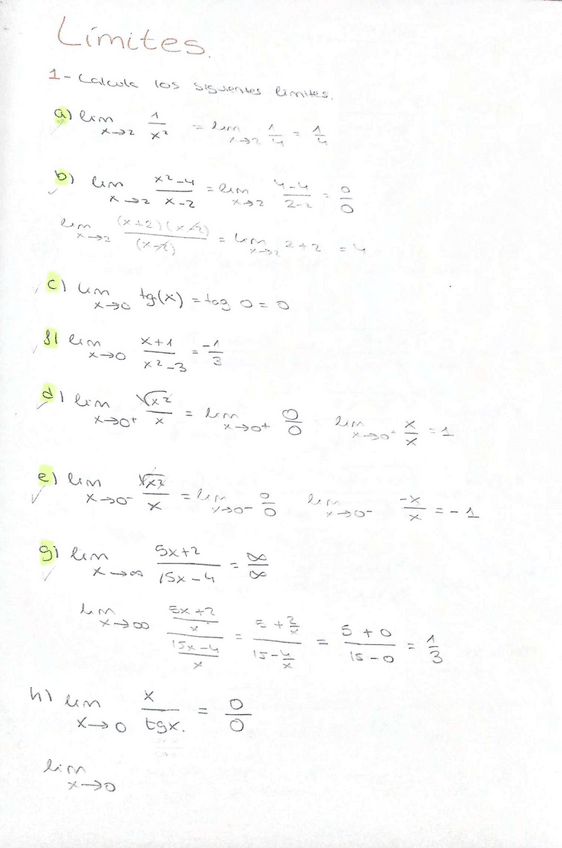 Límites.
1- Calcula los siguientes límites.
a) lim x→2 1/x² = lim x→2 1/4 = 1/4
b) lim x→2 (x²-4)/(x-2) = lim x→2 (4-4)/(2-2) = 0/0
lim x→2 (x+2)(x-2)/(x-2) = lim x→2 2+2 = 4
c) lim x→0 tg(x) = tag 0 = 0
f) lim x→0 (x+1)/(x²-3) = -1/3
d) lim x→0⁺ √x²/x = lim x→0⁺ 0/0 lim x→0⁺ x/x = 1
e) lim x→0⁻ √x²/x = lim x→0⁻ 0/0 lim x→0⁻ -x/x = -1
g) lim x→∞ (5x+2)/(15x-4) = ∞/∞
lim x→∞ ((5x+2)/x)/((15x-4)/x) = (5+2/x)/(15-4/x) = (5+0)/(15-0) = 1/3
h) lim x→0 x/tgx. = 0/0
lim x→0